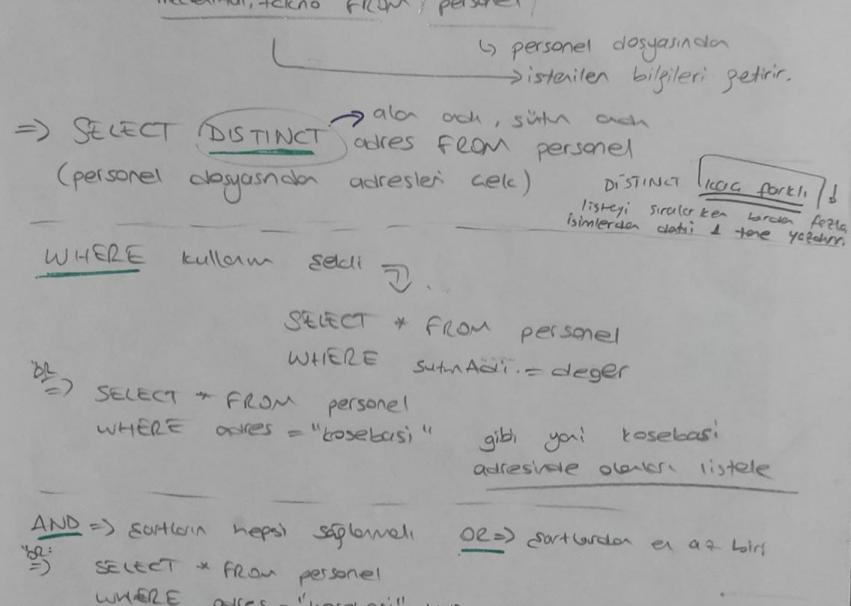 tekno FROM personel
↳ personel dosyasından
→ istenilen bilgileri getirir.
→ alan adı, sütun adı
=> SELECT DISTINCT adres FROM personel
(personel dosyasından adresleri cek)
DİSTINCT kaç farklı
listeyi sıralarken birden fazla
isimlerden dahi 1 tane yazdırır.
WHERE kullanım şekli
SELECT * FROM personel
WHERE sutunAdi = deger
ÖR
=> SELECT * FROM personel
WHERE adres = "kosebasi" gibi yani kosebasi
adresinde olanları listele
AND => şartların hepsi sağlanmalı OR => şartlardan en az biri
ÖR:
=> SELECT * FROM personel
WHERE adres =